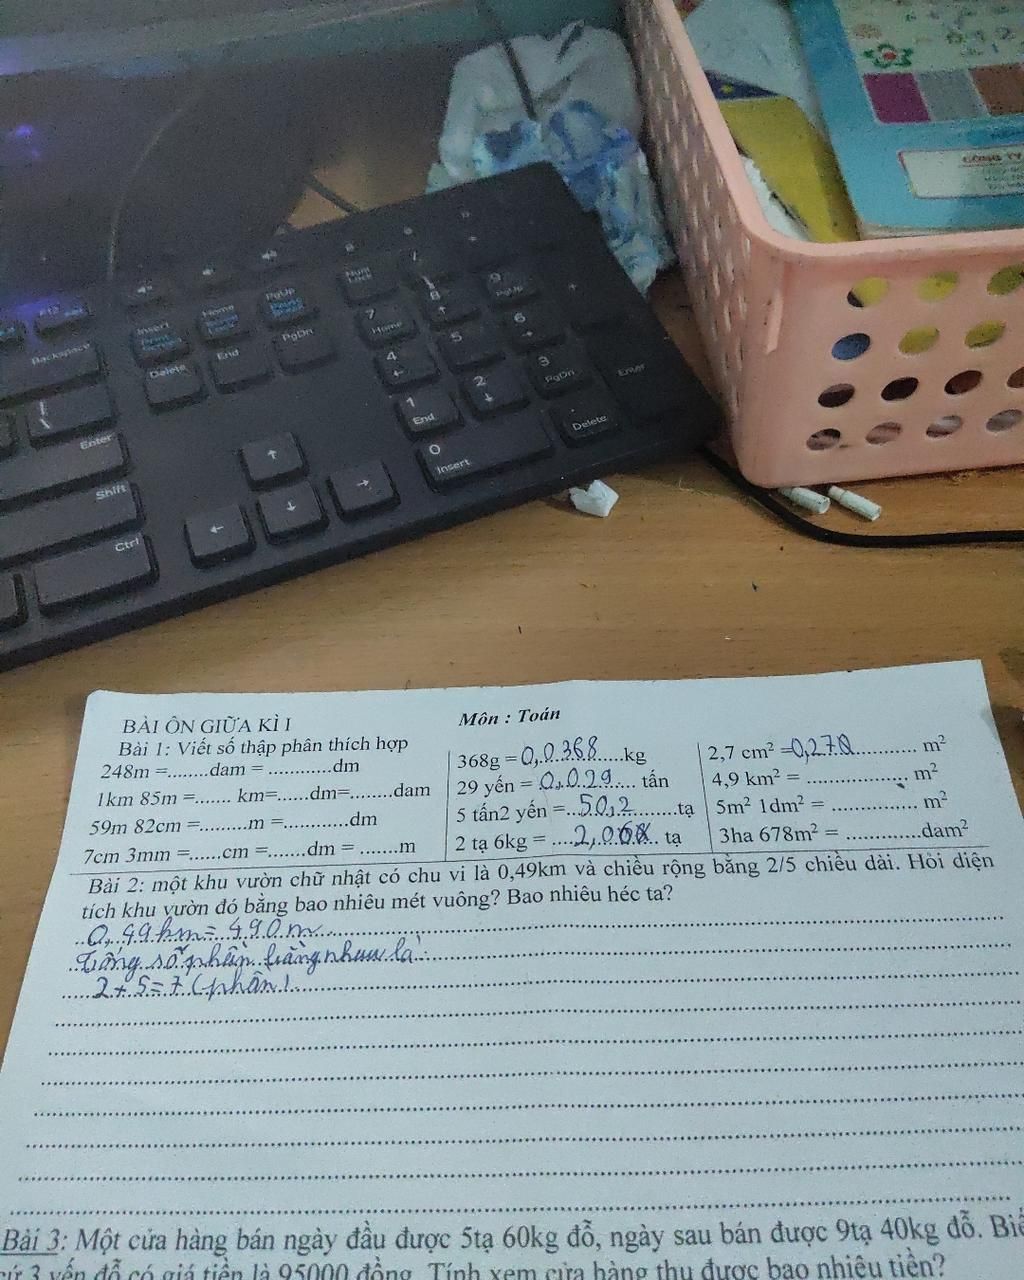 CÔNG TY
F12
Backspace
Enter
Shift
Ctrl
Insert
Home
PgUp
Delete
End
PgDn
Num Lock
7 Home
8
9 PgUp
4
5
6
1 End
2
3 PgDn
Enter
0 Insert
. Delete
BÀI ÔN GIỮA KÌ I
Môn : Toán
Bài 1: Viết số thập phân thích hợp
248m =........dam = ............dm
1km 85m =....... km=......dm=........dam
59m 82cm =.........m =............dm
7cm 3mm =......cm =.......dm = .......m
368g = 0,0368.....kg
29 yến = 0,029.... tấn
5 tấn2 yến =..50,2.........tạ
2 tạ 6kg = ....2,068.. tạ
2,7 cm² =0,270............ m²
4,9 km² = ................... m²
5m² 1dm² = ............... m²
3ha 678m² = .............dam²
Bài 2: một khu vườn chữ nhật có chu vi là 0,49km và chiều rộng bằng 2/5 chiều dài. Hỏi diện
tích khu vườn đó bằng bao nhiêu mét vuông? Bao nhiêu héc ta?
0,49km = 490m
Tổng số phần bằng nhau là:
2+5=7 (phần)
Bài 3: Một cửa hàng bán ngày đầu được 5tạ 60kg đỗ, ngày sau bán được 9tạ 40kg đỗ. Biế
cứ 3 yến đỗ có giá tiền là 95000 đồng. Tính xem cửa hàng thu được bao nhiêu tiền?